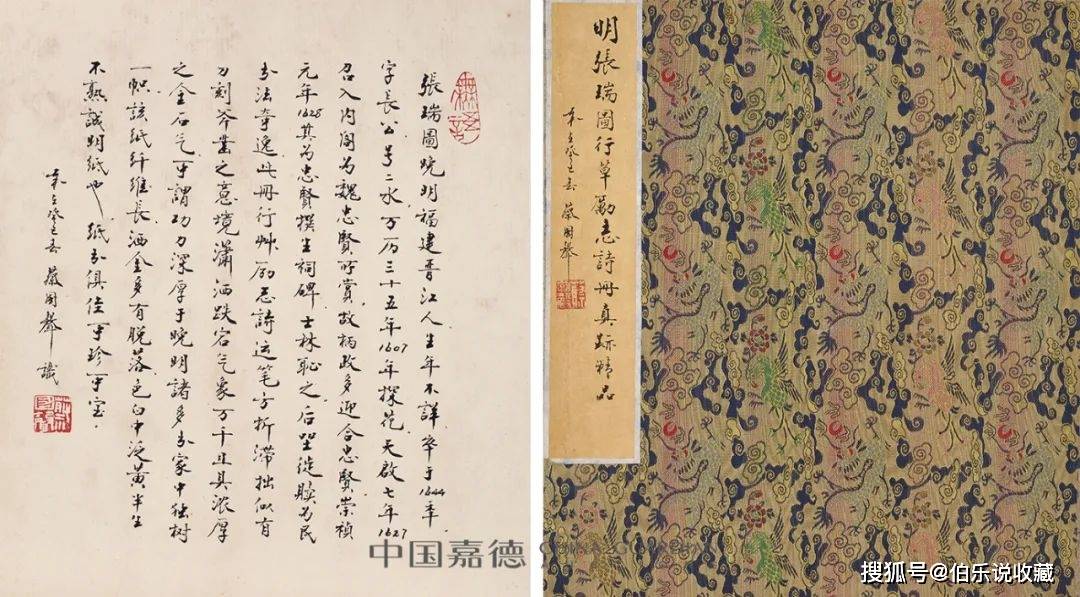 張瑞圖晚明福建晋江人生年不詳卒于1644年.
字長公号二水万历三十五年1607年探花天啟七年1627
召入内阁为魏忠賢所賞故柄政多迎合忠賢崇禎
元年1628其为忠賢撰生祠碑士林恥之后坐徙贖为民
书法奇逸此冊行艸励志詩运笔方折滞拙似有
刀刻斧鑿之意境瀟洒跌宕气象万千且具浓厚
之金石气可謂功力深厚于晚明諸多书家中独树
一帜該纸纤維長洒金多有脱落色白中泛黄半生
不熟誠明紙也 纸书俱佳可珍可宝.
岁在癸巳春 識
明張瑞圖行草勵志詩冊真跡精品
岁在癸巳春
中国嘉德
搜狐号@伯乐说收藏